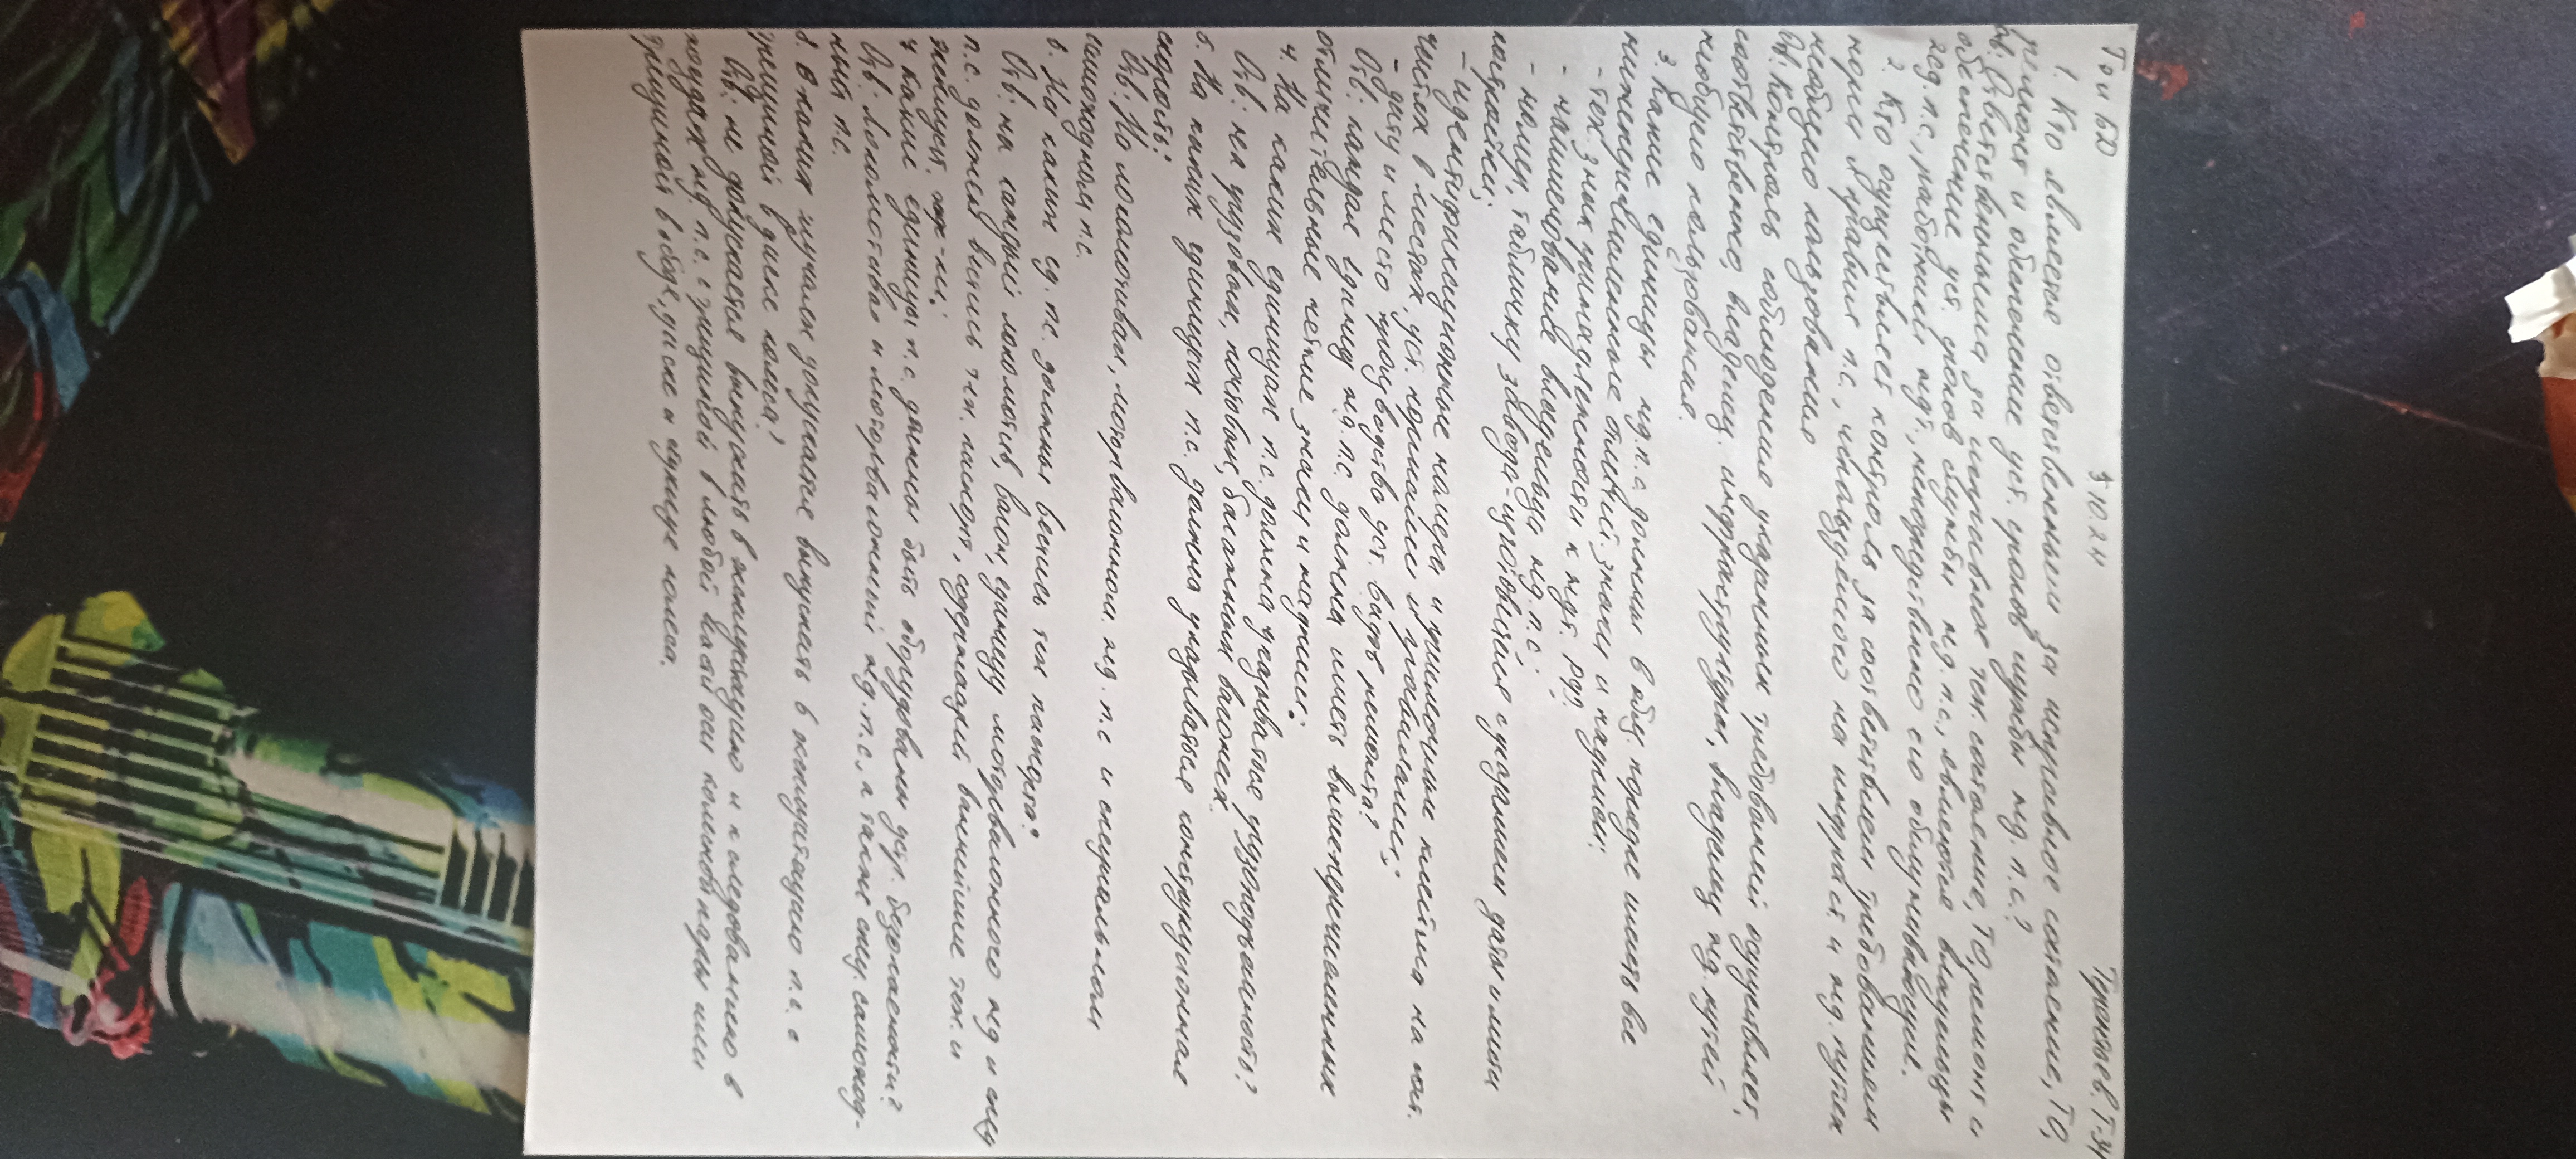 ТО и БД 3 10 24 Т-34
1. Кто является ответственным за исправное состояние, ТО,
ремонт и обеспечение уст. сроков службы жд. п.с.?
Отв: Ответственными за исправное тех. состояние, ТО, ремонт и
обеспечение уст. сроков службы жд. п.с., являются владельцы
жд. п.с., работники ждт., непосредственно его обслуживающие.
2. Кто осуществляет контроль за соответствием требованиям
норм и правил п.с., находящегося на инфрастр. и жд. путях
необщего пользования
Отв: Контроль соблюдения указанных требований осуществляет,
соответственно, владелец инфраструктуры, владелец жд. путей
необщего пользования.
3. Какие единицы жд. п.с должны в обяз. порядке иметь все
нижеперечисленные отличит. знаки и надписи:
- тех. знак принадлежности к ждт. РФ?
- наименование владельца жд. п.с.;
- номер, табличку завода-изготовителя с указанием даты и места
постройки;
- идентификационные номера и приёмочные клейма на сост.
частях в местах, уст. нормами и правилами;
- дату и место производства уст. видов ремонта?
Отв: каждая единица ж.д. п.с. должна иметь вышеперечисленные
отличительные четкие знаки и надписи.
4. На каких единицах п.с. должна указываться грузоподъемность?
Отв: на грузовых, почтовых, багажных вагонах.
5. На каких единицах п.с. должна указываться конструкционная
скорость?
Отв: На локомотивах, моторвагонном жд. п.с и специальном
самоходном п.с.
6. На каких ед. п.с. должны велись тех паспорта?
Отв: на каждый локомотив, вагон, единицу моторвагонного жд и спец
п.с. должен вестись тех. паспорт, содержащий важнейшие тех. и
эксплуат. хар-ки.
7. Какие единицы п.с. должны быть оборудованы уст. безопасности?
Отв: Локомотивы и моторвагонный жд. п.с., а также спец. самоход-
ный п.с.
8. В каких случаях допускается выпускать в эксплуатацию п.с. с
трещиной в диске колеса?
Отв: не допускается выпускать в эксплуатацию и к следованию в
поездах жд п.с. с трещиной в любой части оси колесной пары или
трещиной в ободе, диске и ступице колеса.